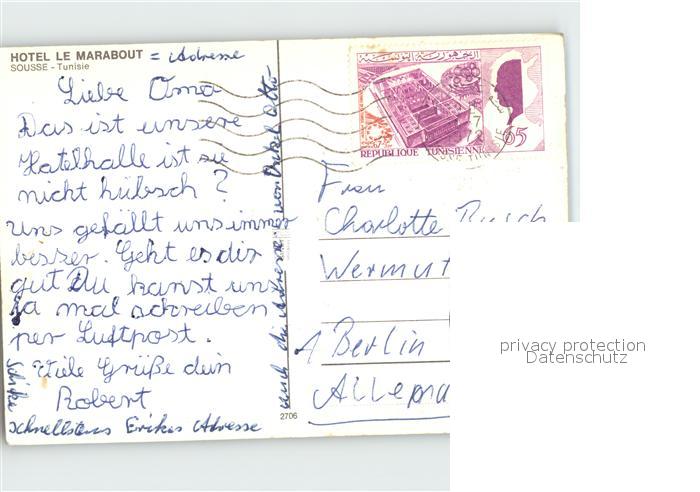 HOTEL LE MARABOUT = Adresse
SOUSSE - Tunisie
Liebe Oma
Das ist unsere
Hotelhalle ist sie
nicht hübsch?
uns gefällt uns immer
besser. Geht es dir
gut Du kanst uns
ja mal schreiben
per Luftpost.
Viele Grüße dein
Robert
Schicke
schnellstens Erikas Adresse
auch die Adresse von Onkel Otto
2706
REPUBLIQUE TUNISIENNE
65
Frau
Charlotte
Wermut
1 Berlin
Allema
privacy protection
Datenschutz